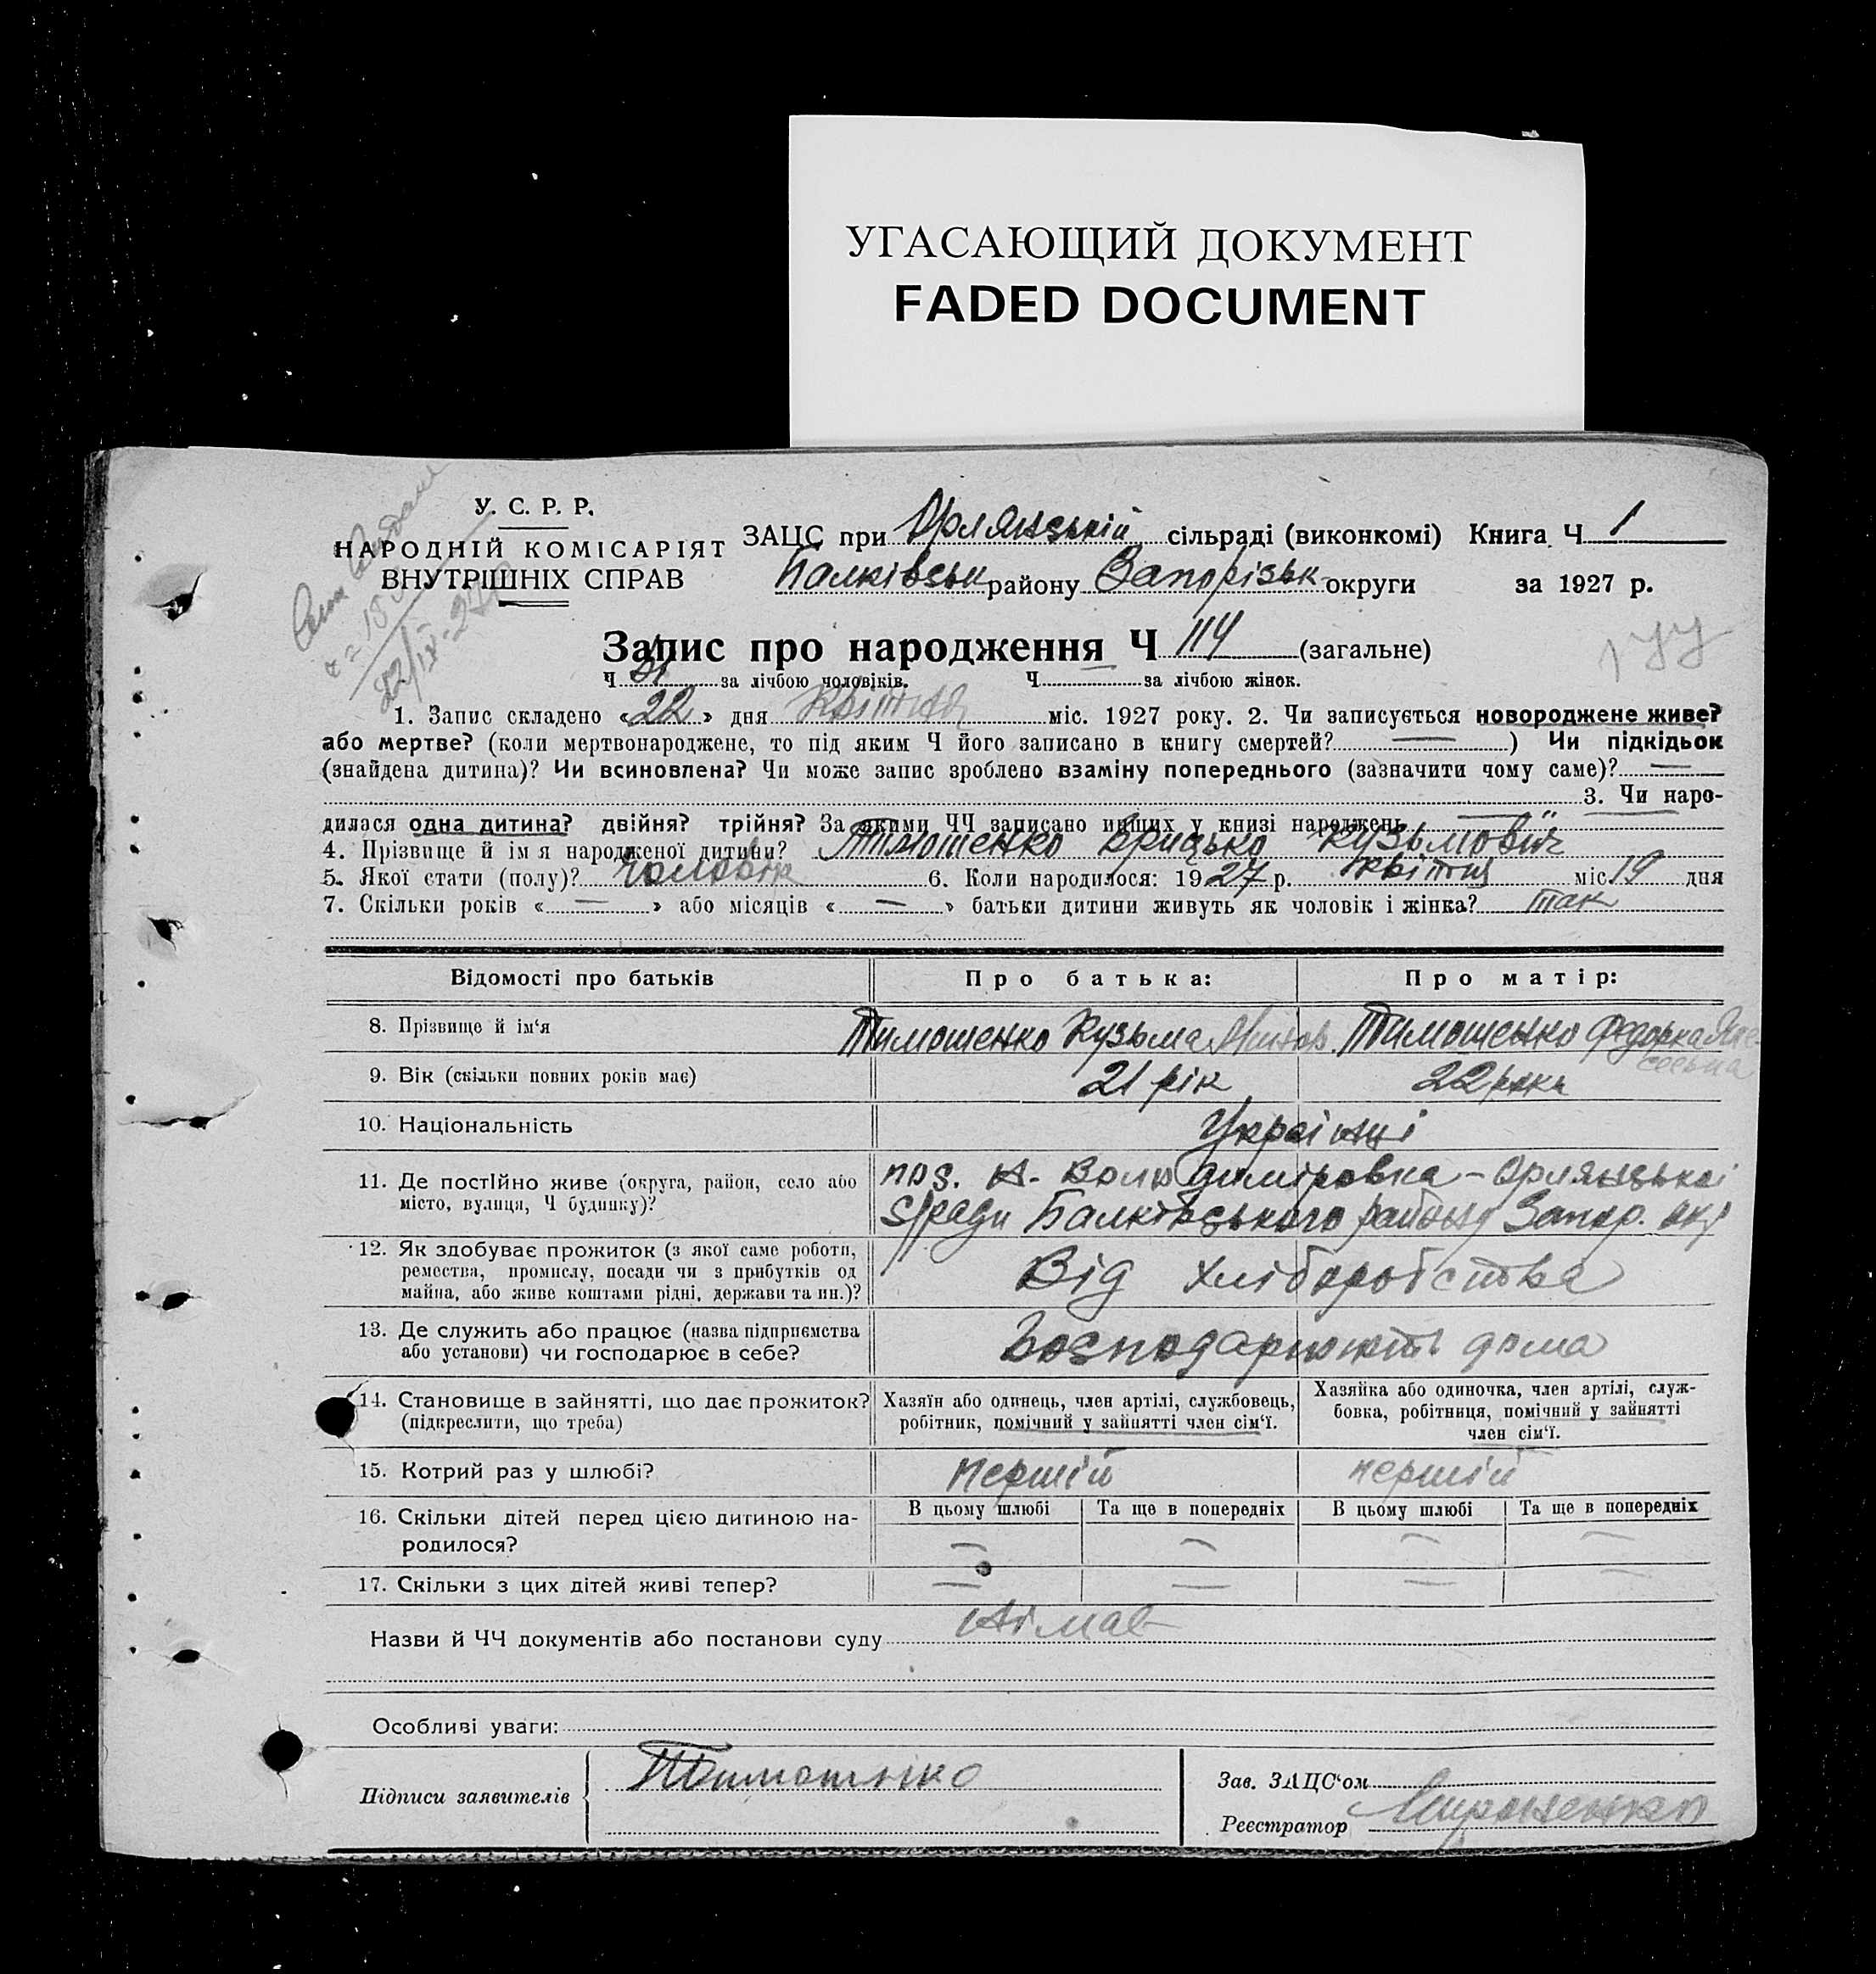 УГАСАЮЩИЙ ДОКУМЕНТ
FADED DOCUMENT
У. С. Р. Р.
НАРОДНІЙ КОМІСАРІЯТ
ВНУТРІШНІХ СПРАВ
ЗАЦС при Орлянській сільраді (виконкомі) Книга Ч 1
Балківськ району Запорізьк округи за 1927 р.
Запис про народження Ч 114 (загальне)
Ч за лічбою чоловіків. Ч за лічбою жінок.
1. Запис складено «22» дня квітня міс. 1927 року. 2. Чи записується новороджене живе?
або мертве? (коли мертвонароджене, то під яким Ч його записано в книгу смертей? —) Чи підкідьок
(знайдена дитина)? Чи всиновлена? Чи може запис зроблено взаміну попереднього (зазначити чому саме)? —
3. Чи наро-
дилася одна дитина? двійня? трійня? За якими ЧЧ записано инших у книзі народжень —
4. Прізвище й ім'я народженої дитини? Тимошенко Грицько Кузьмович
5. Якої стати (полу)? чоловік 6. Коли народилося: 1927 р. квітня міс. 19 дня
7. Скільки років «—» або місяців «—» батьки дитини живуть як чоловік і жінка? так
Відомості про батьків Про батька: Про матір:
8. Прізвище й ім'я Тимошенко Кузьма Тимошенко Федорка
9. Вік (скільки повних років має) 21 рік 22 роки
10. Національність Українці
11. Де постійно живе (округа, район, село або
місто, вулиця, Ч будинку)?
пос. Н. Володимировка - Орлянської
с/ради Балківського району Запор. окр
12. Як здобуває прожиток (з якої саме роботи,
ремества, промислу, посади чи з прибутків од
майна, або живе коштами рідні, держави та ин.)?
Від хліборобства
13. Де служить або працює (назва підприємства
або установи) чи господарює в себе?
Господарюють дома
14. Становище в зайнятті, що дає прожиток?
(підкреслити, що треба)
Хазяїн або одинець, член артілі, службовець,
робітник, помічний у зайнятті член сім'ї.
Хазяйка або одиночка, член артілі, служ-
бовка, робітниця, помічний у зайнятті
член сім'ї.
15. Котрий раз у шлюбі? першій першій
16. Скільки дітей перед цією дитиною на-
родилося?
В цьому шлюбі Та ще в попередніх В цьому шлюбі Та ще в попередніх
— — — —
17. Скільки з цих дітей живі тепер? — — — —
Назви й ЧЧ документів або постанови суду Німає
Особливі уваги:
Підписи заявителів Тимошенко
Зав. ЗАЦС'ом
Реєстратор Мироненко